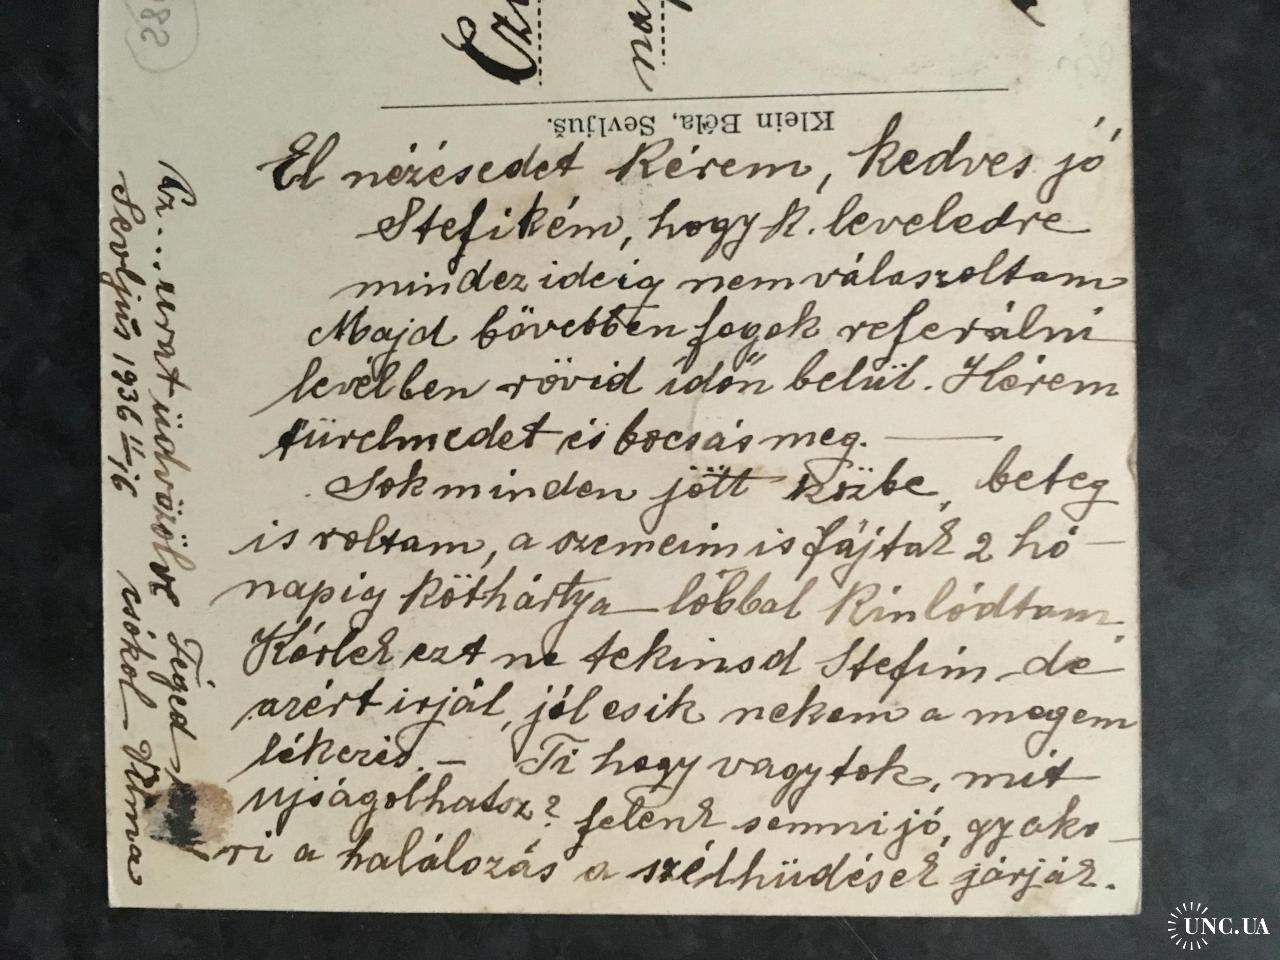 Klein Béla, Sevljuš.
El nézésedet kérem, kedves jó
Stefikém, hogy k. leveledre
mindez ideig nem válaszoltam
Majd bővebben fogok referálni
levélben rövid időn belül. Kérem
türelmedet és bocsás meg. —
Sok minden jött közbe, beteg
is voltam, a szemeim is fájtak 2 hó-
napig köthártya-lobbal kinlódtam.
Kérlek ezt ne tekinsd Stefim de
azért irjál, jól esik nekem a megem
lékezés. — Ti hogy vagytok, mit
ujságolhatsz? felénk semmi jó, gyako-
ri a halálozás a szélhüdések járják.
Kz... urat üdvözölve Téged
Sevljus 1936 II/16 csókol Vilma
882
UNC.UA